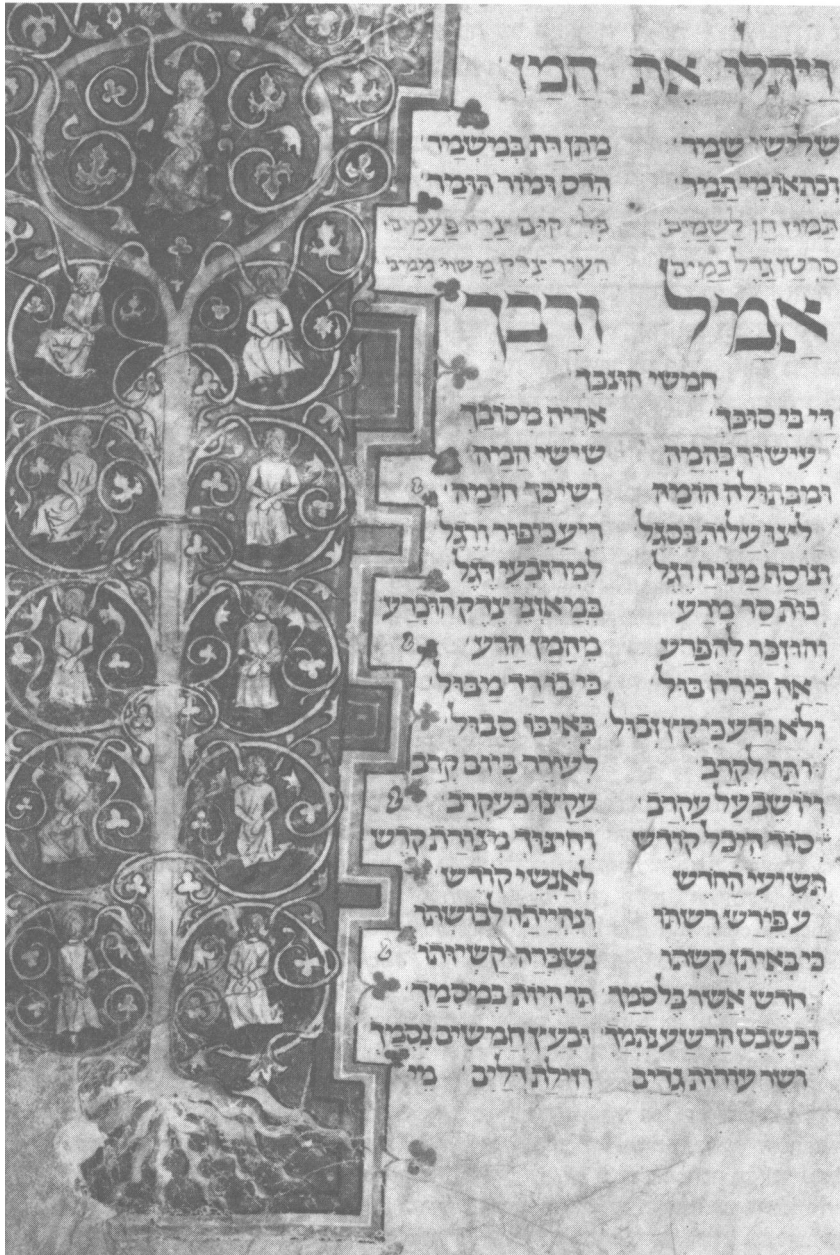 וַיִּתְלוּ אֶת הָמָן
שלישי שמד׳ מתן דת במשמר׳
ובתאומי תמיר׳ הדס ומור תומר׳
תמוז חן לשמים׳ בלי קום צרה פעמים׳
סרטן גדל במים׳
אָמַל וְרָבַךְ
חמישי חונבך׳
די בי סובך׳ אריה מסובך
עישור בהמה׳ שישי המיה׳
ומבתולה הומה׳ ושיכך חימה׳
ליצו עלות בסגל
תנוסת מנוח רגל למרובעי רגל
כות סר מרע׳ במאזני צדק הוכרע׳
והוזכר להפרע מהמן הרע׳
אה בירח בול׳ כי בורר מבול׳
באיבו סבול׳
ותר לקרב׳ לעורר ביום קרב
ויושב על עקרב׳ עקצו בעקרב׳
סוד היכל קודש וחינוך מצורת קדש
תשיעי החדש לאנשי קודש׳
עפירש רשתו ונהייתה לבושתו
כי באיתן קשתו נשברה קשיותו
חדש אשר בלסמך׳ הרהיות במסמך׳
ובשבט הרשע נהמך׳ ובעץ חמישים נסמך
ושר עורות גדיים וזולת דליים מי